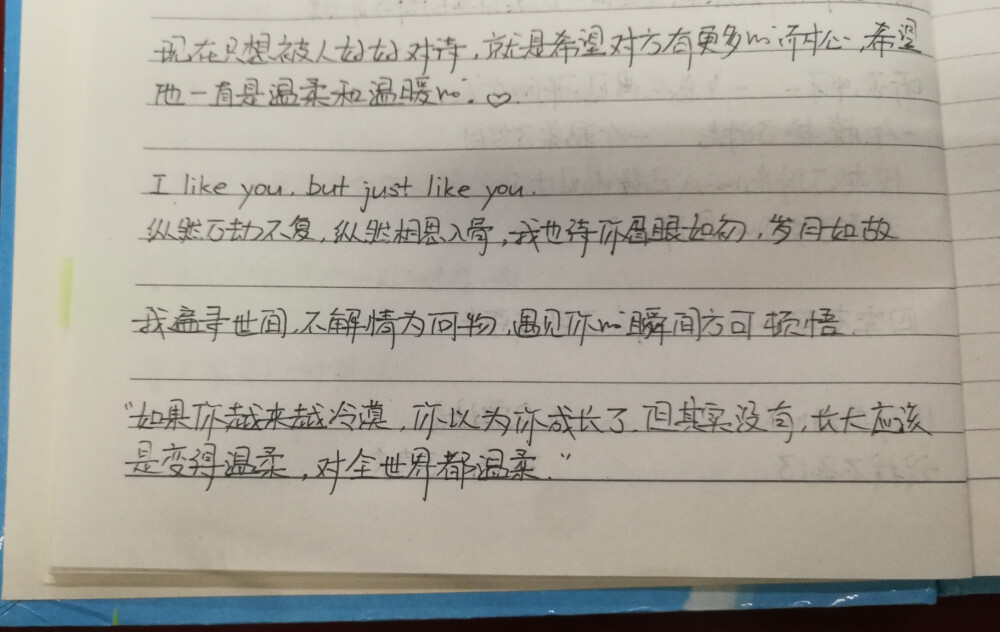 现在只想被人好好对待，就是希望对方有更多的耐心，希望
他一直是温柔和温暖的。♡
I like you. but just like you.
纵然万劫不复，纵然相思入骨，我也待你眉眼如初，岁月如故
我遍寻世间，不解情为何物，遇见你的瞬间方可顿悟.
"如果你越来越冷漠，你以为你成长了，但其实没有，长大应该
是变得温柔，对全世界都温柔."